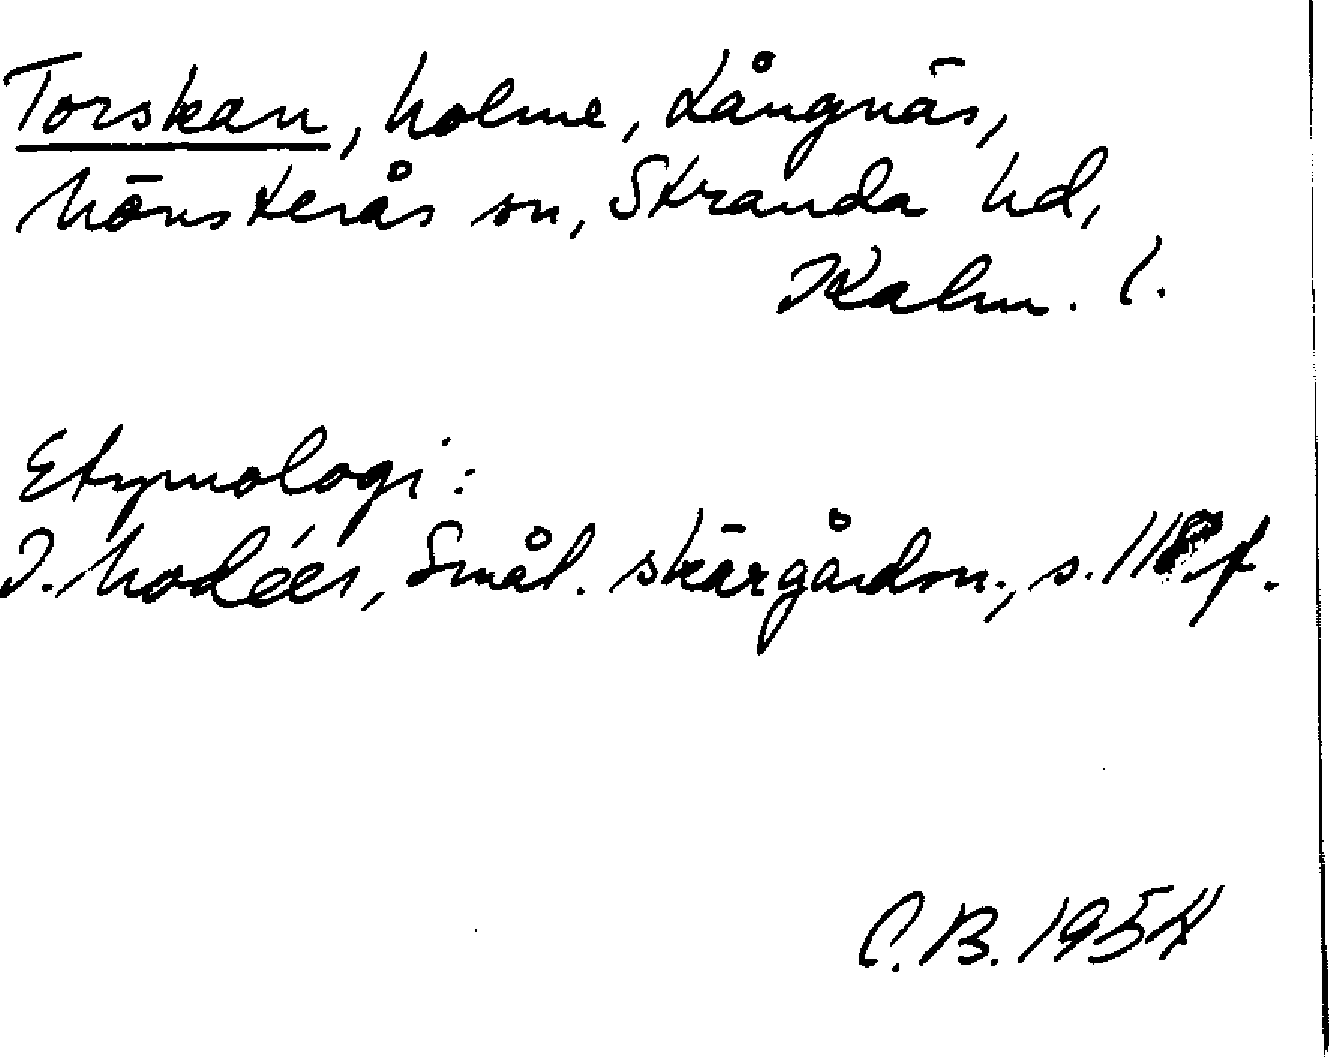 Torskan, holme, Långnäs,
Mönsterås sn, Stranda hd,
Kalm. l.
Etymologi:
I. Modéer, Smål. skärgårdsn., s. 118 f.
C.B. 1954